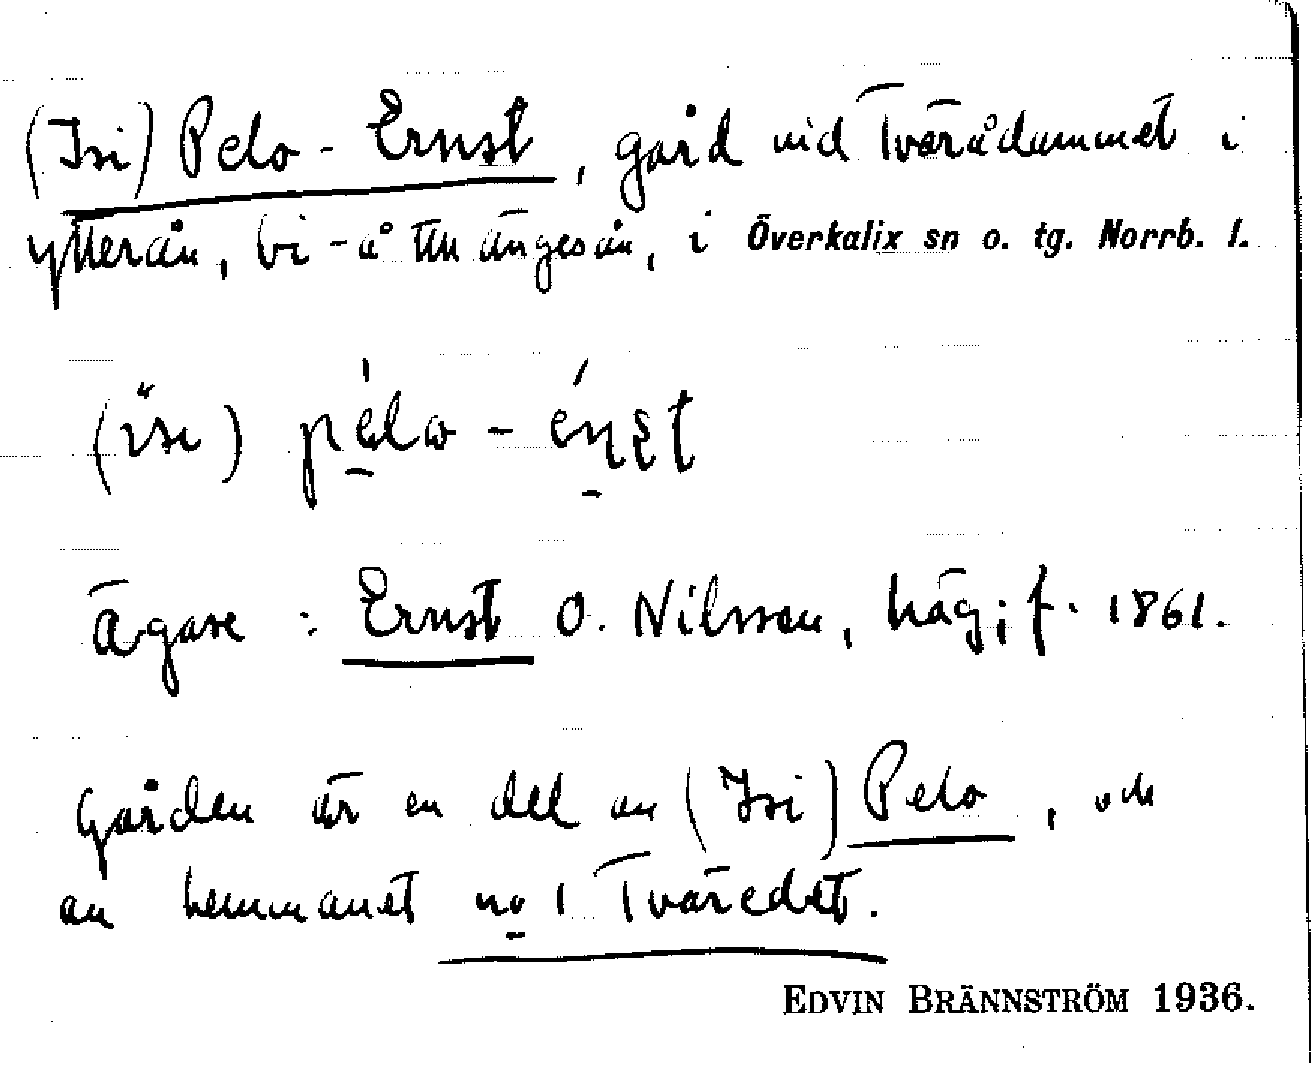 (Isi) Pelo-Ernst, gård vid Tvärådammet i
ytterån, bi-å till ängesån, i Överkalix sn o. tg. Norrb. l.
Ägare: Ernst O. Nilsson, häg; f. 1861.
Gården är en del av (Isi) Pelo, och
av hemmanet no 1 Tväredet.
EDVIN BRÄNNSTRÖM 1936.